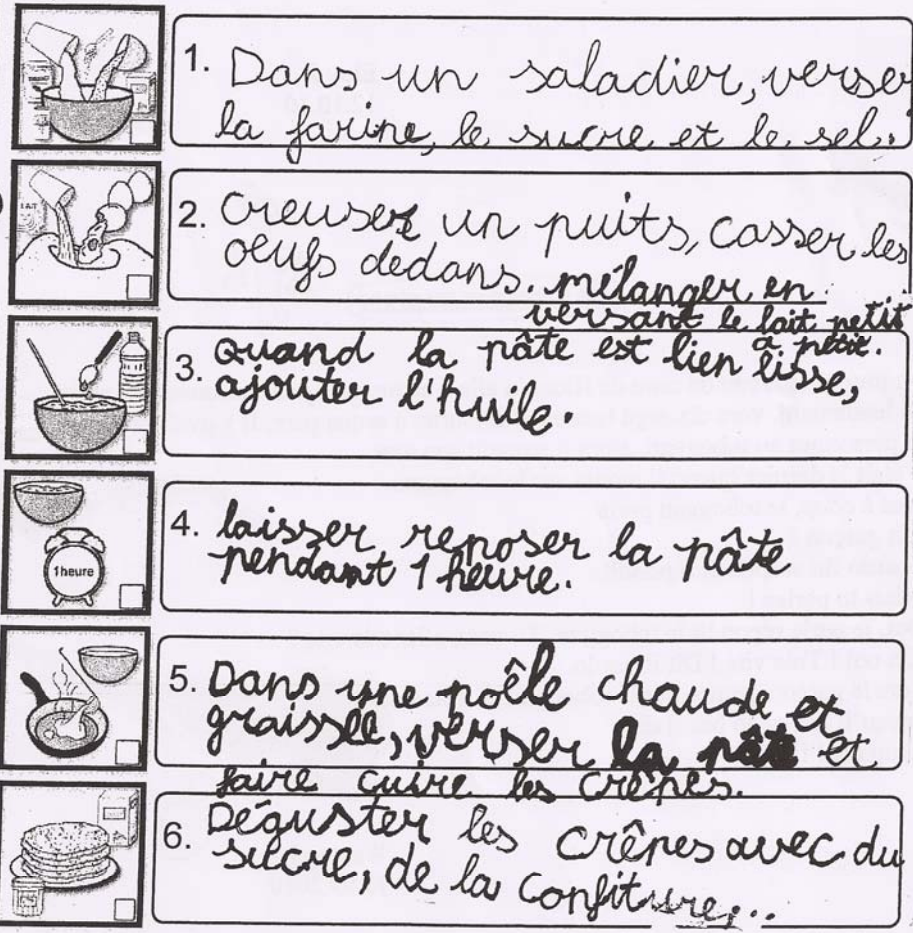 1. Dans un saladier, verser
la farine, le sucre et le sel.
2. Creuser un puits, casser les
oeufs dedans. mélanger en
versant le lait petit
à petit.
3. Quand la pâte est bien lisse,
ajouter l'huile.
1 heure
4. laisser reposer la pâte
pendant 1 heure.
5. Dans une poêle chaude et
graissée, verser la pâte et
faire cuire les crêpes.
6. Déguster les crêpes avec du
sucre, de la confiture,...